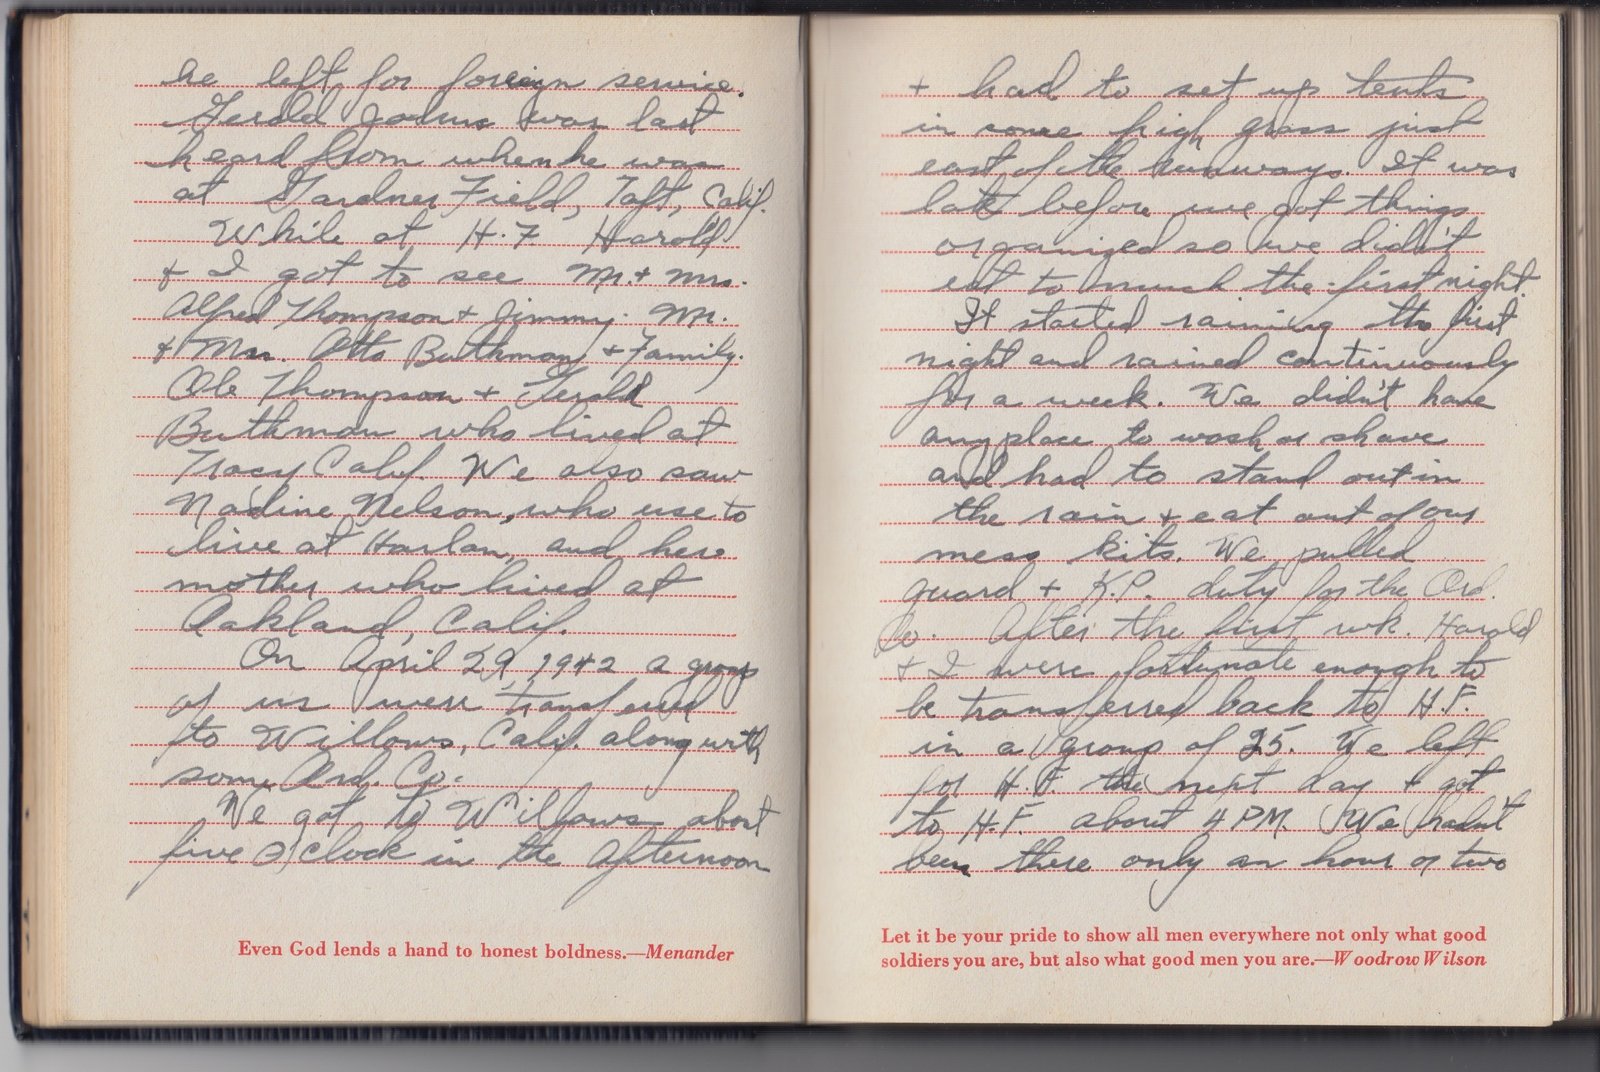 he left for foreign service.
Gerald was last
heard from when he was
at Gardner Field, Taft, Calif.
While at H.F Harold
+ I got to see Mr. + Mrs.
Alfred Thompson + Jimmy. Mr.
+ Mrs. Otto Buthman + Family.
Ole Thompson + Gerald
Buthman who lived at
Tracy Calif. We also saw
Nadine Nelson, who use to
live at Harlan, and here
mother who lived at
Oakland, Calif.
On April 29, 1942 a group
of us were transferred
to Willows, Calif. along with
some Ord. Co.
We got to Willows about
five o'clock in the afternoon
Even God lends a hand to honest boldness.—Menander
+ had to set up tents
in some high grass just
east of the runways. It was
late before we got things
organized so we didn't
eat to much the first night.
It started raining the first
night and rained continuously
for a week. We didn't have
any place to wash or shave
and had to stand out in
the rain + eat out of our
mess kits. We pulled
guard + K.P. duty for the Ord.
Co. After the first wk. Harold
+ I were fortunate enough to
be transferred back to H.F.
in a group of 25. We left
for H.F. the next day + got
to H.F. about 4 PM. We hadn't
been there only an hour or two
Let it be your pride to show all men everywhere not only what good
soldiers you are, but also what good men you are.—Woodrow Wilson